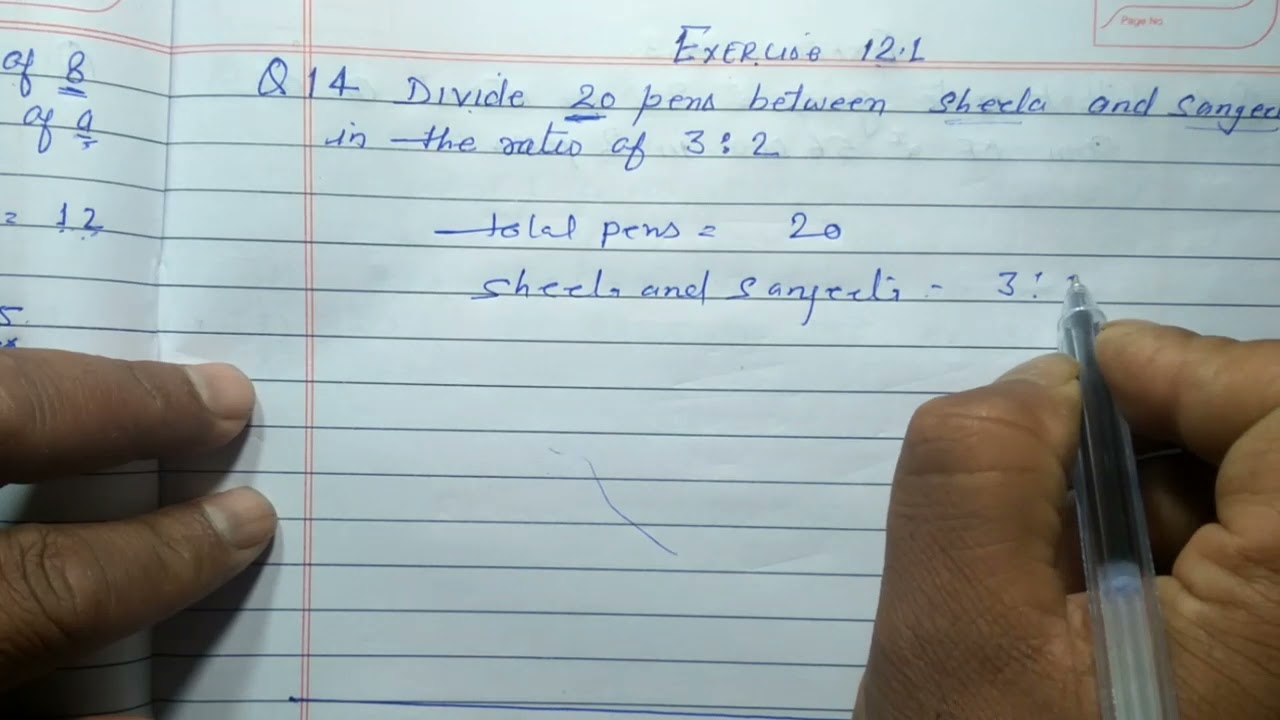 Page No.
EXERCISE 12.1
of 8
Q 14 Divide 20 pens between Sheela and Sangee
of 9
in the ratio of 3:2
= 12
total pens = 20
Sheela and Sangeeta - 3:
5